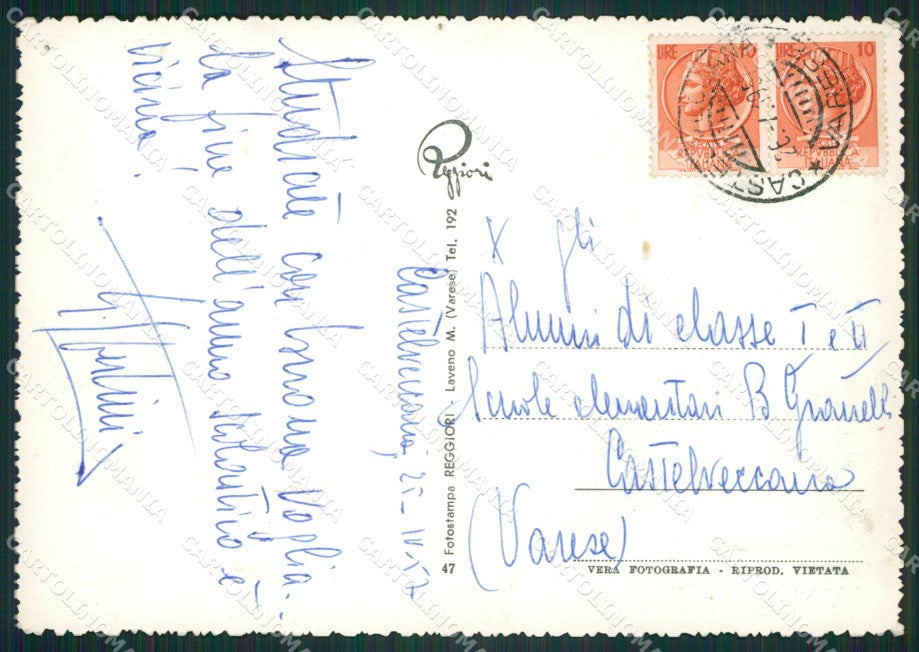 Castelveccana, 25-IV-57
Studiate con buona voglia...
la fine dell'anno scolastico è
vicina!
Reggiori
47 Fotostampa REGGIORI - Laveno M. (Varese) Tel. 192
LIRE
LIRE 10
CASTELVECCANA
★ VARESE ★
X gli
Alunni di classe I e II
Scuole elementari B Granelli
Castelveccana
(Varese)
VERA FOTOGRAFIA - RIPROD. VIETATA
CARTOLINOMANIA